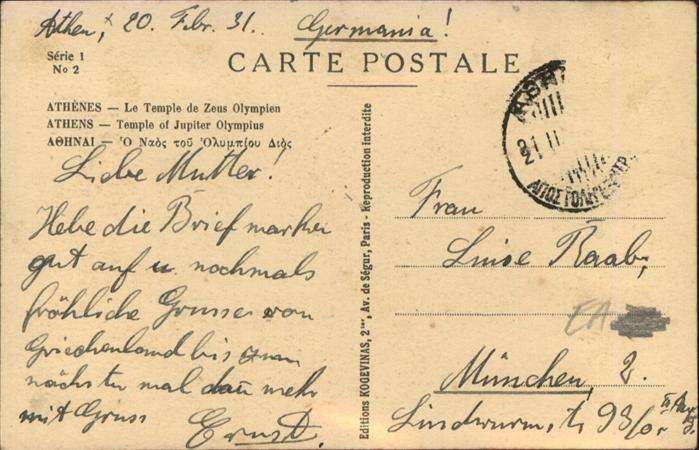 Athen, 20. Febr. 31. Germania!
Série 1
No 2
CARTE POSTALE
ATHÈNES — Le Temple de Zeus Olympien
ATHENS — Temple of Jupiter Olympius
ΑΘΗΝΑΙ — Ὁ Ναὸς τοῦ Ὀλυμπίου Διὸς
Liebe Mutter!
Hebe die Briefmarken
gut auf u. nochmals
fröhliche Grüsse von
Griechenland bis zum
nächsten mal dan mehr
mit Gruss
Ernst.
Editions KOGEVINAS, 2, Av. de Ségur, Paris - Reproduction interdite
21 II
Frau
Luise Raab,
München, 2.
Lindwurmstr 93/0r